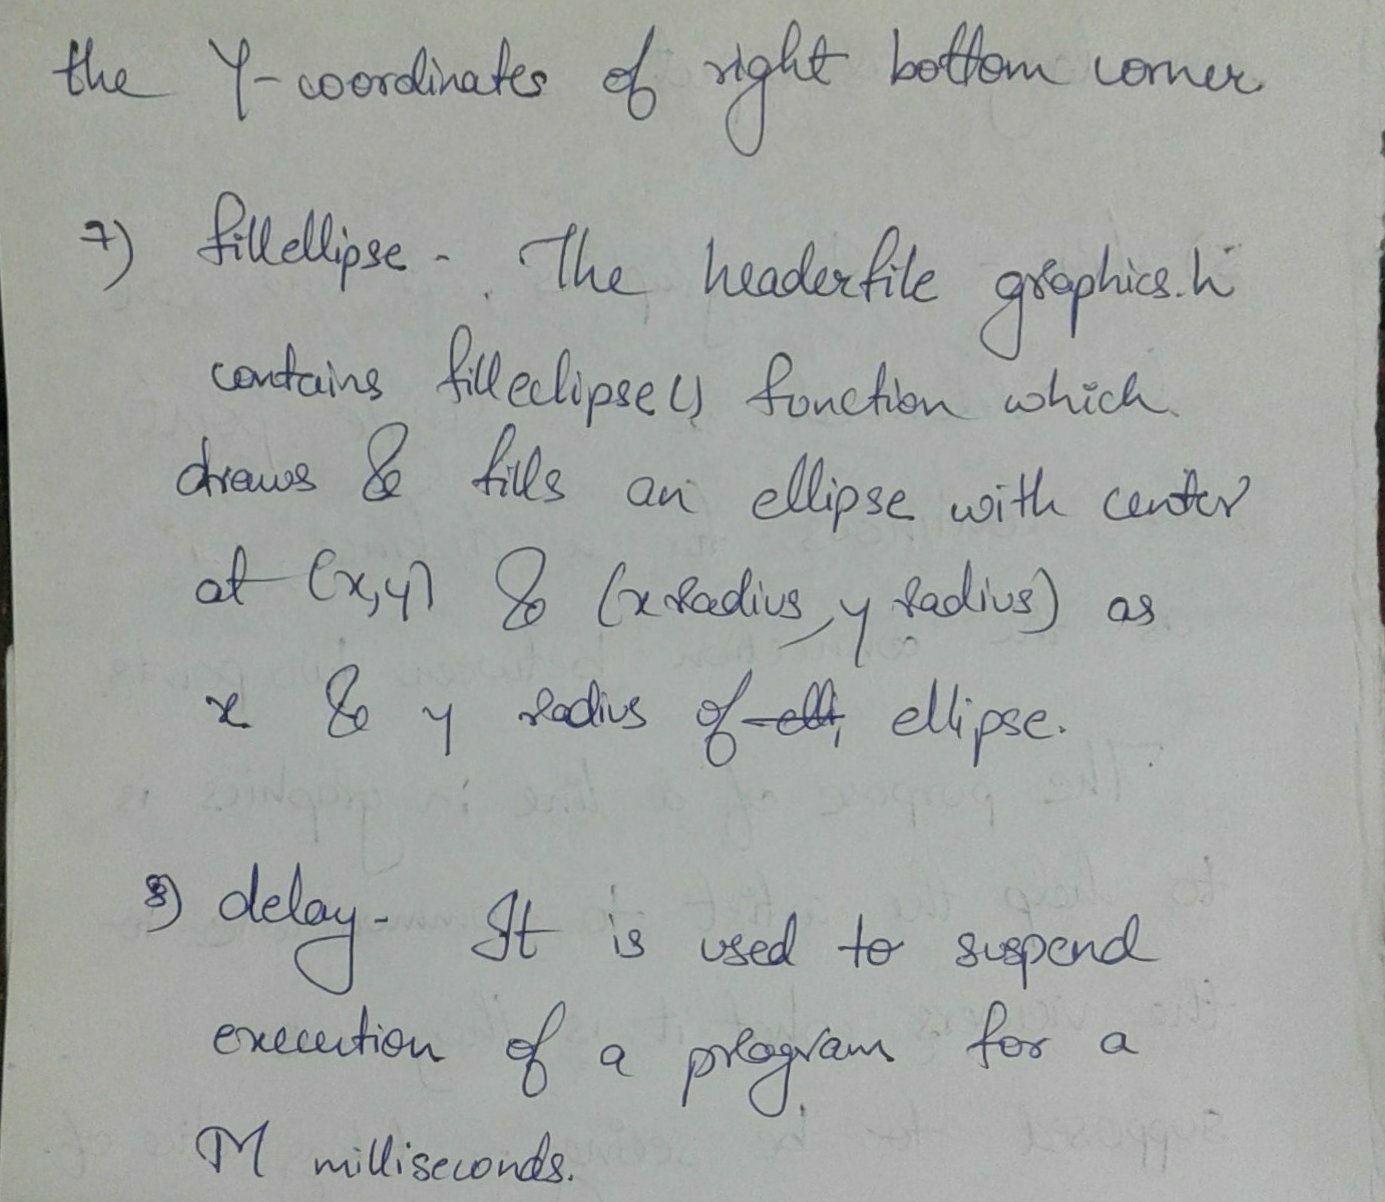 the Y-coordinates of right bottom corner
7) fillellipse - The headerfile graphics.h
contains filleclipse() function which
draws & fills an ellipse with center
at (x,y) & (x radius, y radius) as
x & y radius of elli, ellipse.
8) delay - It is used to suspend
execution of a program for a
M milliseconds.